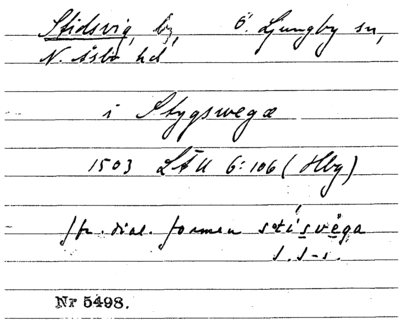 Stidsvig, by, Ö. Ljungby sn,
N. Åsbo hd
i Stygswegæ
1503 LÅU 6:106 (Hbg)
fr. dial. formen stísvěga
s. s-s.
Nr 5498.